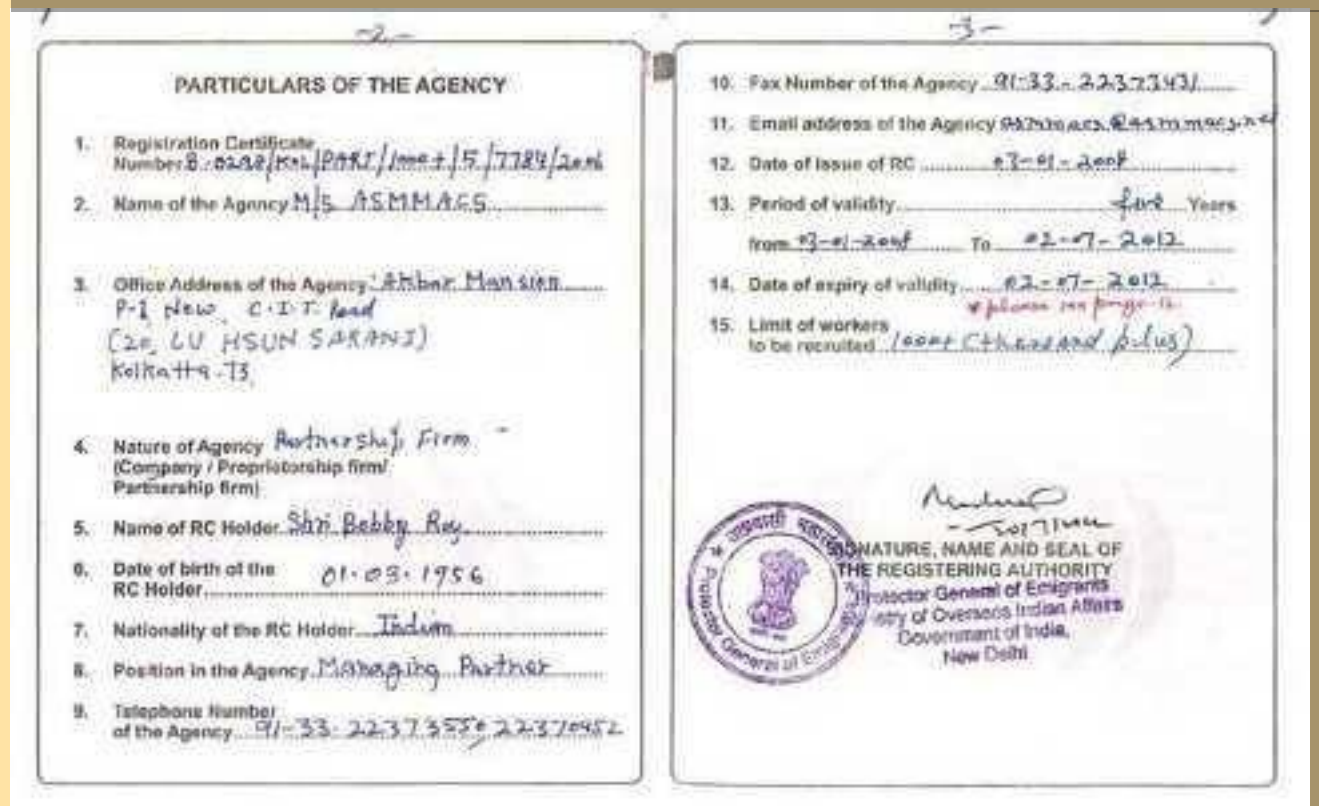 -2-
PARTICULARS OF THE AGENCY
1. Registration Certificate
Number B-0298/KOL/PART/1000+/5/7784/2006
2. Name of the Agency M/S ASMMACS
3. Office Address of the Agency: Akbar Mansion
P-1 New C.I.T. Road
(20, LU HSUN SARANI)
Kolkatta-73
4. Nature of Agency Partnership Firm
(Company / Proprietorship firm/
Partnership firm)
5. Name of RC Holder Shri Bobby Roy
6. Date of birth of the
RC Holder 01-03-1956
7. Nationality of the RC Holder Indian
8. Position in the Agency Managing Partner
9. Telephone Number
of the Agency 91-33-22373550, 22370452
-3-
10. Fax Number of the Agency 91-33-22373431
11. Email address of the Agency asmmacs@asmmacs.net
12. Date of Issue of RC 03-01-2008
13. Period of validity five Years
from 03-01-2008 To 02-07-2012
14. Date of expiry of validity 02-07-2012
* please see page
15. Limit of workers
to be recruited 1000+ (thousand plus)
SIGNATURE, NAME AND SEAL OF
THE REGISTERING AUTHORITY
Protector General of Emigrants
Ministry of Overseas Indian Affairs
Government of India,
New Delhi
Protector General of Emigrants